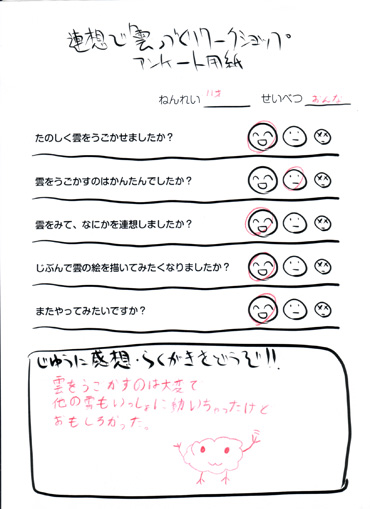 連想で雲づくりワークショップ
アンケート用紙
ねんれい 11才 せいべつ おんな
たのしく雲をうごかせましたか？
雲をうごかすのはかんたんでしたか？
雲をみて、なにかを連想しましたか？
じぶんで雲の絵を描いてみたくなりましたか？
またやってみたいですか？
じゆうに感想・らくがきをどうぞ!!
雲をうごかすのは大変で
他の雲もいっしょに動いちゃったけど
おもしろかった。